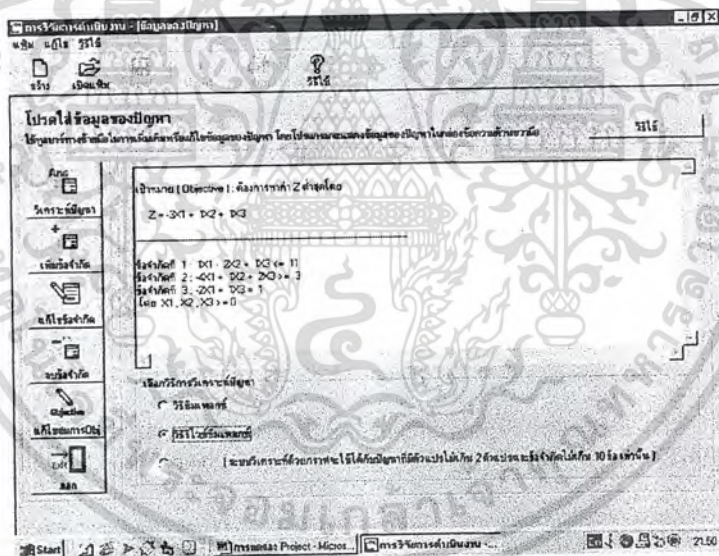 การวิจัยการดำเนินงาน - [ข้อมูลของปัญหา]
แฟ้ม แก้ไข วิธีใช้
สร้าง เปิดแฟ้ม วิธีใช้
โปรดใส่ข้อมูลของปัญหา
ใช้ทูลบาร์ทางซ้ายมือในการเพิ่มเติมหรือแก้ไขข้อมูลของปัญหา โดยโปรแกรมจะแสดงข้อมูลของปัญหาในกล่องข้อความด้านขวามือ
วิธีใช้
Ans
วิเคราะห์ปัญหา
เพิ่มข้อจำกัด
แก้ไขข้อจำกัด
ลบข้อจำกัด
Objective
แก้ไขสมการObj
Exit
ออก
เป้าหมาย ( Objective ) : ต้องการหาค่า Z ต่ำสุดโดย
Z = -3X1 + 1X2 + 1X3
ข้อจำกัดที่ 1 : 1X1 - 2X2 + 1X3 <= 11
ข้อจำกัดที่ 2 : -4X1 + 1X2 + 2X3 >= 3
ข้อจำกัดที่ 3 : -2X1 + 1X3 = 1
โดย X1 , X2 , X3 >= 0
เลือกวิธีการวิเคราะห์ปัญหา
วิธีซิมเพลกซ์
วิธีรีไวซ์ซิมเพลกซ์
[ ระบบวิเคราะห์ด้วยกราฟจะใช้ได้กับปัญหาที่มีตัวแปรไม่เกิน 2 ตัวแปรและข้อจำกัดไม่เกิน 10 ข้อ เท่านั้น ]
Start การทดลอง Project - Micros... การวิจัยการดำเนินงาน -... 21:50